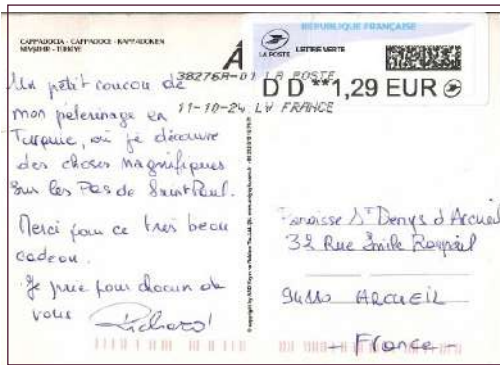 CAPPADOCIA - CAPPADOCE - KAPPADOKIEN
NEVŞEHİR - TÜRKİYE
RÉPUBLIQUE FRANÇAISE
LA POSTE
LETTRE VERTE
D D **1,29 EUR
38276A-01 LA POSTE
11-10-24 LV FRANCE
Un petit coucou de
mon pèlerinage en
Turquie, où je découvre
des choses magnifiques
sur les Pas de Saint Paul.
Merci pour ce très beau
cadeau.
Je prie pour chacun de
vous
Richard
Paroisse St Denys d'Arcueil
32 Rue Emile Raspail
94110 ARCUEIL
- France -